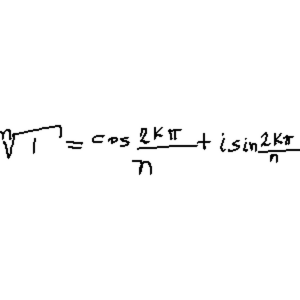 ⁿ√1 = cos 2kπ/n + i sin 2kπ/n